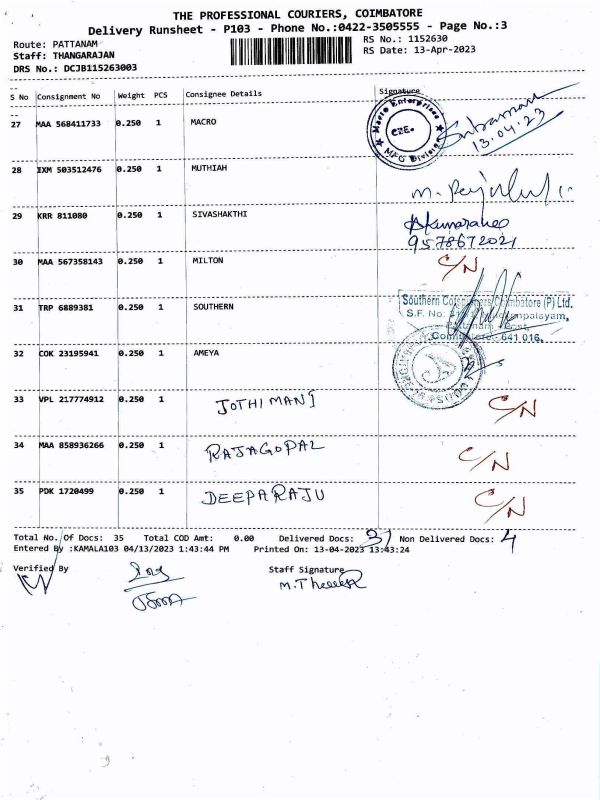 THE PROFESSIONAL COURIERS, COIMBATORE
Delivery Runsheet - P103 - Phone No.:0422-3505555 - Page No.:3
Route: PATTANAM
RS No.: 1152630
Staff: THANGARAJAN
RS Date: 13-Apr-2023
DRS No.: DCJB115263003
S No Consignment No Weight PCS Consignee Details Signature
27 MAA 568411733 0.250 1 MACRO
Macro Enterprises
CBE.
MFG Division
13.04.23
28 IXM 503512476 0.250 1 MUTHIAH
29 KRR 811080 0.250 1 SIVASHAKTHI
9578672021
30 MAA 567358143 0.250 1 MILTON C/N
31 TRP 6889381 0.250 1 SOUTHERN
Southern (P) Ltd.
S.F. No:
Coimbatore - 641 016.
32 COK 23195941 0.250 1 AMEYA
33 VPL 217774912 0.250 1 JOTHIMANI C/N
34 MAA 858936266 0.250 1 RAJAGOPAL C/N
35 PDK 1720499 0.250 1 DEEPARAJU C/N
Total No. Of Docs: 35 Total COD Amt: 0.00 Delivered Docs: 31 Non Delivered Docs: 4
Entered By :KAMALA103 04/13/2023 1:43:44 PM Printed On: 13-04-2023 13:43:24
Verified By Staff Signature